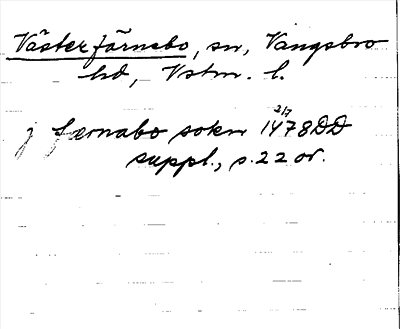 Västerfärnebo, sn, Vangsbro
hd, Vstm. l.
2/7
j færnabo sokn 1478 DD
suppl., s. 22 or.